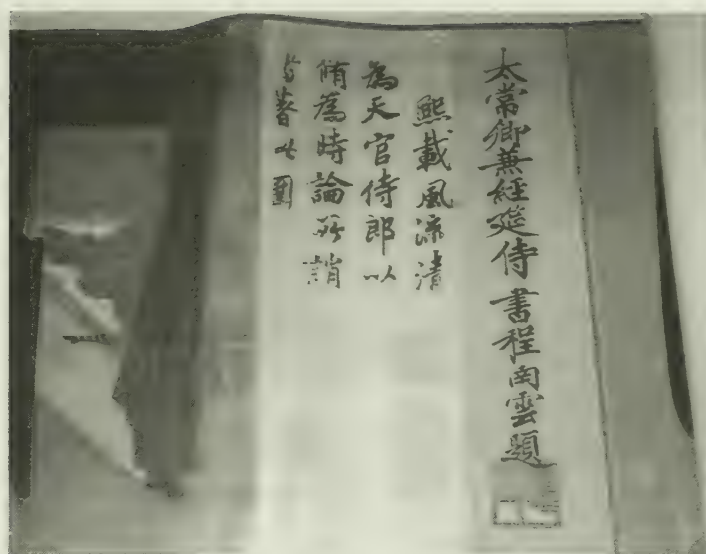 太常卿兼經筵侍書程南雲題
熙載風流清
為天官侍郎以
脩為時論所誚
著此圖